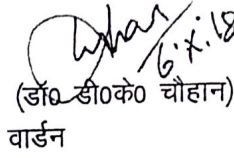 6.x.18
(डॉ0 डी0के0 चौहान)
वार्डन